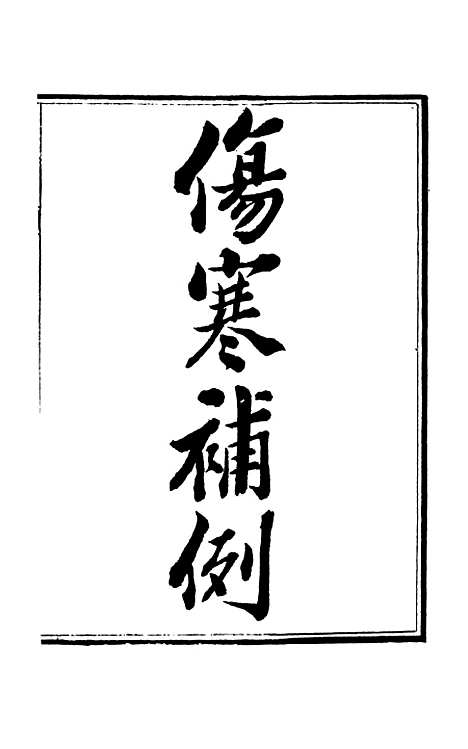 傷寒補例